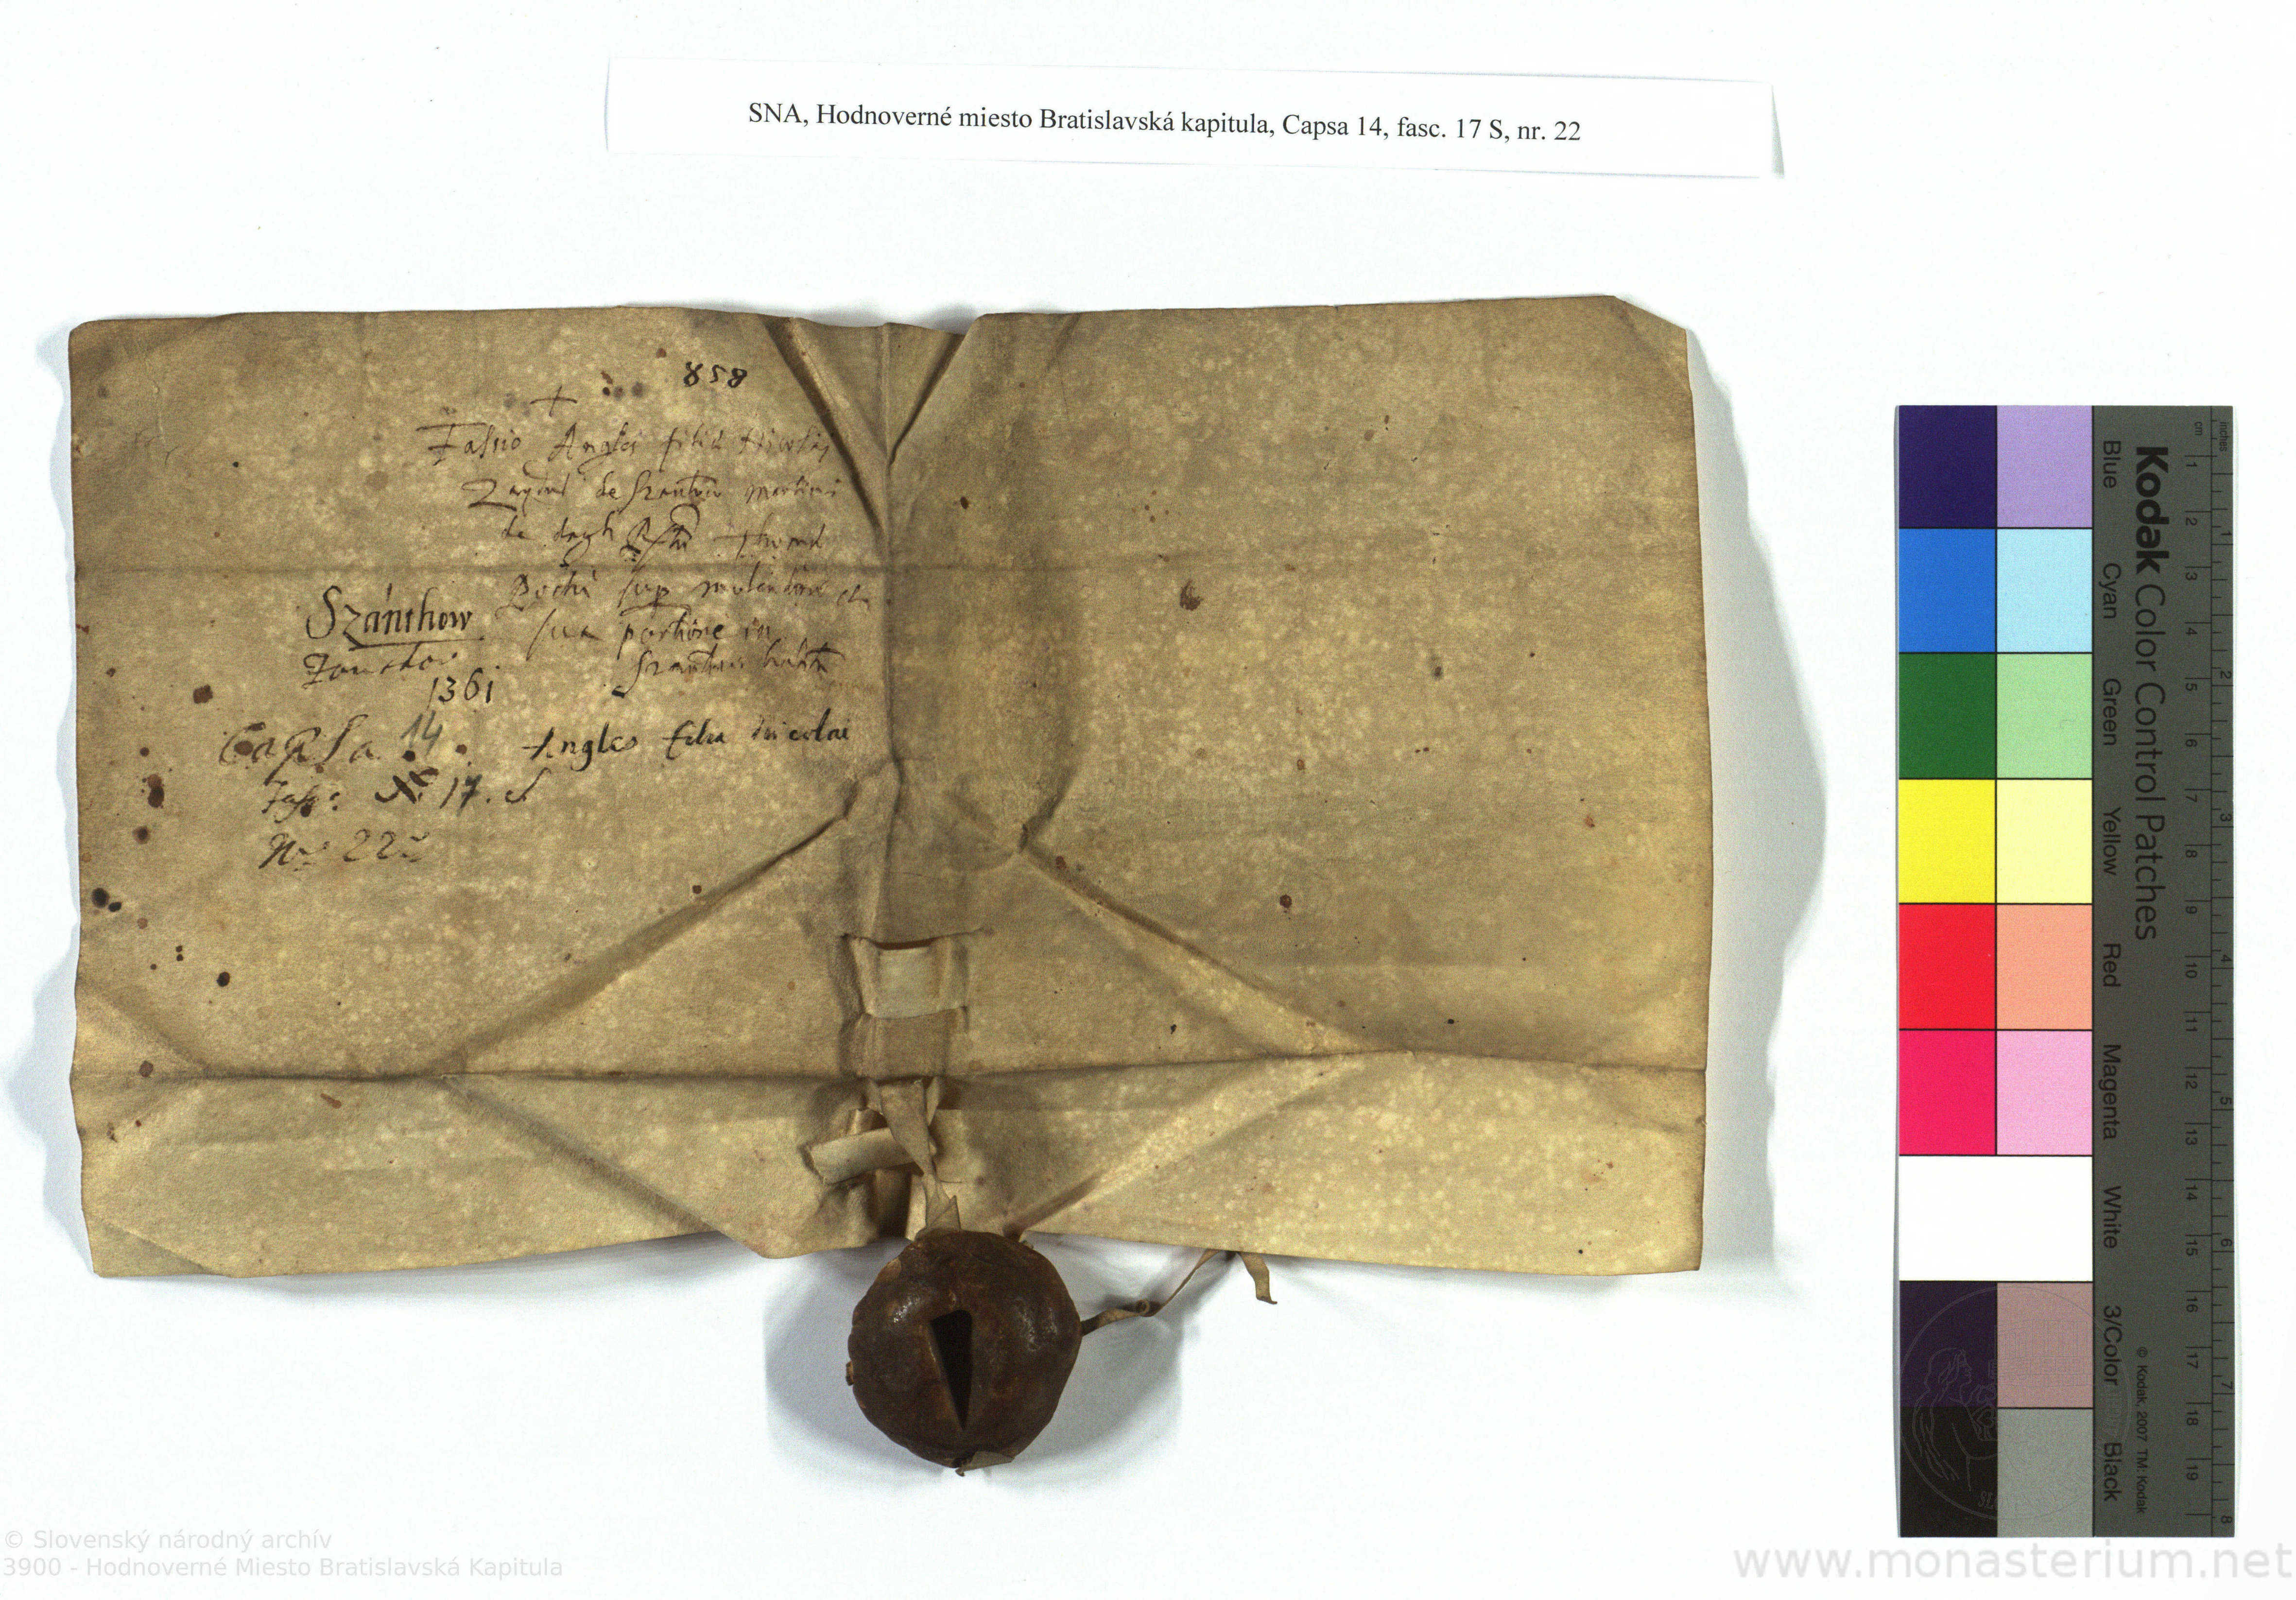 SNA, Hodnoverné miesto Bratislavská kapitula, Capsa 14, fasc. 17 S, nr. 22
858
+
Fassio Angles filie Nicolai
de Szantow martini
de
sup molendino
Szánthow
sua portione in
Szantow
1361
Capsa 14.
Angles filia Nicolai
Fasc: 17. S
No: 22
Kodak Color Control Patches
Blue Cyan Green Yellow Red Magenta White 3/Color Black
© Kodak, 2007 TM: Kodak
inches
cm
1 2 3 4 5 6 7 8 9 10 11 12 13 14 15 16 17 18 19
1 2 3 4 5 6 7 8
© Slovenský národný archív
3900 - Hodnoverné Miesto Bratislavská Kapitula
www.monasterium.net